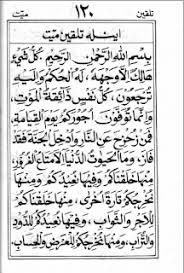 تلقين ١٢٠ ميّت
اينيله تلقين ميّت
بِسْمِ اللهِ الرَّحْمٰنِ الرَّحِيْمِ، كُلُّ شَيْءٍ
هَالِكٌ اِلَّا وَجْهَهُ، لَهُ الْحُكْمُ وَاِلَيْهِ
تُرْجَعُوْنَ، كُلُّ نَفْسٍ ذَائِقَةُ الْمَوْتِ،
وَاِنَّمَا تُوَفَّوْنَ اُجُوْرَكُمْ يَوْمَ الْقِيَامَةِ،
فَمَنْ زُحْزِحَ عَنِ النَّارِ وَاُدْخِلَ الْجَنَّةَ فَقَدْ
فَازَ، وَمَا الْحَيٰوةُ الدُّنْيَا اِلَّا مَتَاعُ الْغُرُوْرِ،
مِنْهَا خَلَقْنَاكُمْ وَفِيْهَا نُعِيْدُكُمْ وَمِنْهَا
نُخْرِجُكُمْ تَارَةً اُخْرٰى، مِنْهَا خَلَقْنَاكُمْ
لِلْاَجْرِ وَالثَّوَابِ، وَفِيْهَا نُعِيْدُكُمْ لِلدُّوْدِ
وَالتُّرَابِ، وَمِنْهَا نُخْرِجُكُمْ لِلْعَرْضِ وَالْحِسَابِ،